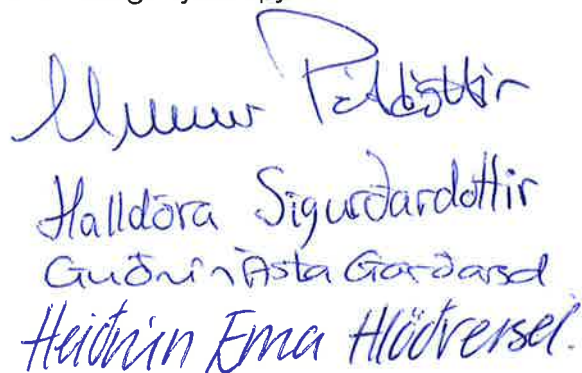 Unnur Pálsdóttir
Halldóra Sigurðardóttir
Guðrún Ásta Garðarsd
Heiðrún Erna Hlöðversd.